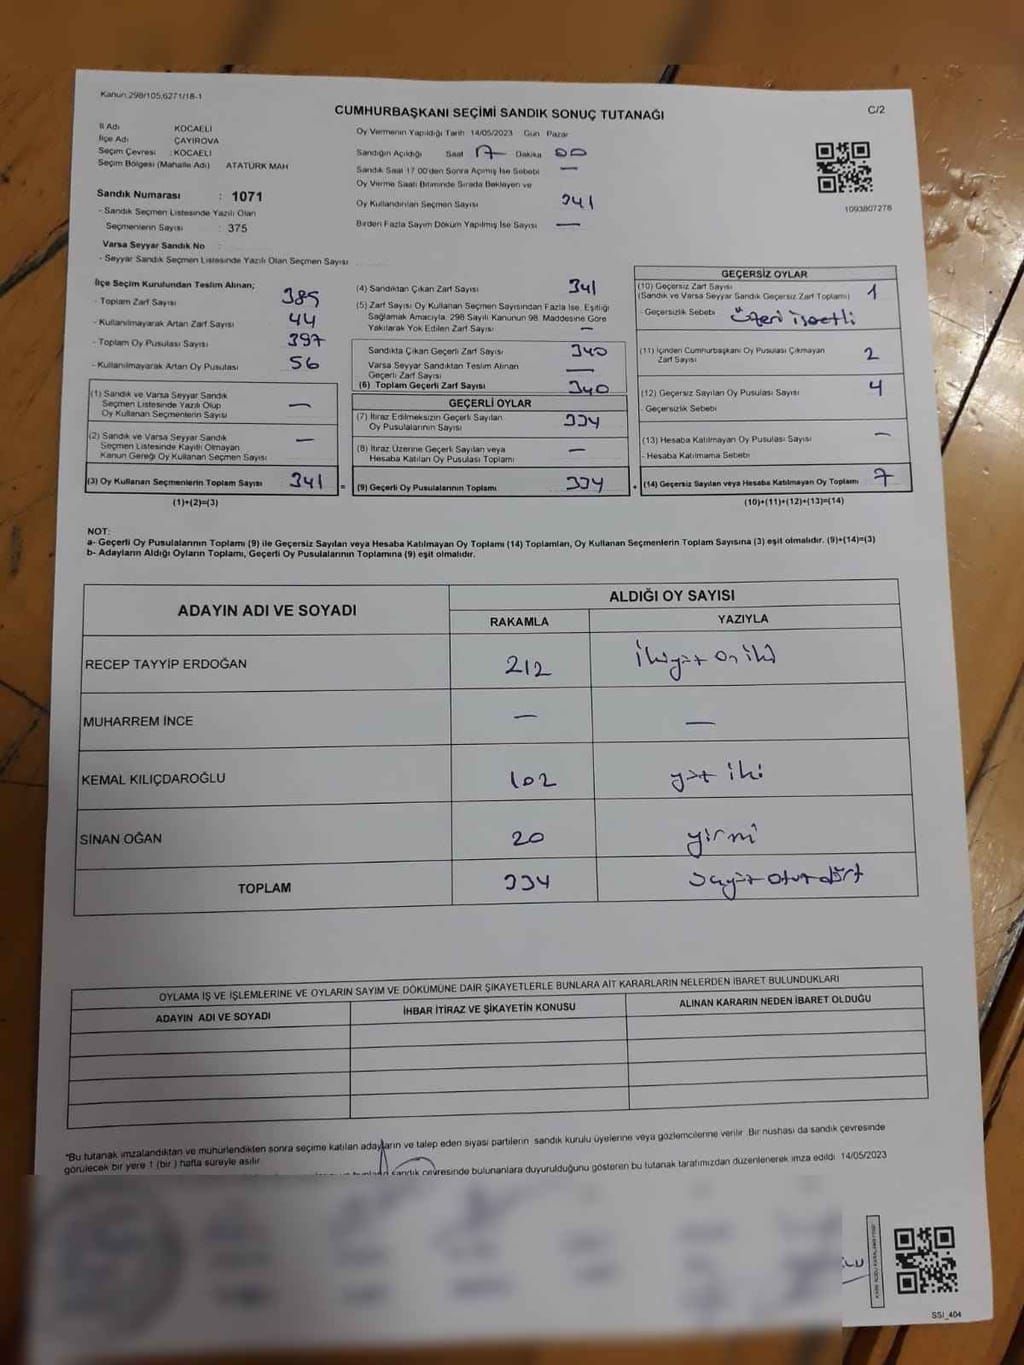 Kanun:298/105,6271/18-1
CUMHURBAŞKANI SEÇİMİ SANDIK SONUÇ TUTANAĞI
C/2
İl Adı KOCAELİ
İlçe Adı ÇAYIROVA
Seçim Çevresi : KOCAELİ
Seçim Bölgesi (Mahalle Adı) ATATÜRK MAH
Sandık Numarası : 1071
- Sandık Seçmen Listesinde Yazılı Olan
Seçmenlerin Sayısı : 375
Varsa Seyyar Sandık No :
- Seyyar Sandık Seçmen Listesinde Yazılı Olan Seçmen Sayısı
Oy Vermenin Yapıldığı Tarih 14/05/2023 Gün Pazar
Sandığın Açıldığı Saat 17 Dakika 00
Sandık Saat 17.00'den Sonra Açılmış İse Sebebi —
Oy Verme Saati Bitiminde Sırada Bekleyen ve
Oy Kullandırılan Seçmen Sayısı 341
Birden Fazla Sayım Döküm Yapılmış İse Sayısı —
1093807276
İlçe Seçim Kurulundan Teslim Alınan;
- Toplam Zarf Sayısı 385
- Kullanılmayarak Artan Zarf Sayısı 44
- Toplam Oy Pusulası Sayısı 397
- Kullanılmayarak Artan Oy Pusulası 56
(1) Sandık ve Varsa Seyyar Sandık
Seçmen Listesinde Yazılı Olup
Oy Kullanan Seçmenlerin Sayısı —
(2) Sandık ve Varsa Seyyar Sandık
Seçmen Listesinde Kayıtlı Olmayan
Kanun Gereği Oy Kullanan Seçmen Sayısı —
(3) Oy Kullanan Seçmenlerin Toplam Sayısı 341 =
(1)+(2)=(3)
(4) Sandıktan Çıkan Zarf Sayısı 341
(5) Zarf Sayısı Oy Kullanan Seçmen Sayısından Fazla İse, Eşitliği
Sağlamak Amacıyla, 298 Sayılı Kanunun 98. Maddesine Göre
Yakılarak Yok Edilen Zarf Sayısı —
Sandıkta Çıkan Geçerli Zarf Sayısı 340
Varsa Seyyar Sandıktan Teslim Alınan
Geçerli Zarf Sayısı —
(6) Toplam Geçerli Zarf Sayısı 340
GEÇERLİ OYLAR
(7) İtiraz Edilmeksizin Geçerli Sayılan
Oy Pusulalarının Sayısı 334
(8) İtiraz Üzerine Geçerli Sayılan veya
Hesaba Katılan Oy Pusulası Toplamı —
(9) Geçerli Oy Pusulalarının Toplamı 334 +
GEÇERSİZ OYLAR
(10) Geçersiz Zarf Sayısı
(Sandık ve Varsa Seyyar Sandık Geçersiz Zarf Toplamı) 1
- Geçersizlik Sebebi Üzeri işaretli
(11) İçinden Cumhurbaşkanı Oy Pusulası Çıkmayan
Zarf Sayısı 2
(12) Geçersiz Sayılan Oy Pusulası Sayısı 4
Geçersizlik Sebebi
(13) Hesaba Katılmayan Oy Pusulası Sayısı —
- Hesaba Katılmama Sebebi
(14) Geçersiz Sayılan veya Hesaba Katılmayan Oy Toplamı 7
(10)+(11)+(12)+(13)=(14)
NOT:
a- Geçerli Oy Pusulalarının Toplamı (9) ile Geçersiz Sayılan veya Hesaba Katılmayan Oy Toplamı (14) Toplamları, Oy Kullanan Seçmenlerin Toplam Sayısına (3) eşit olmalıdır. (9)+(14)=(3)
b- Adayların Aldığı Oyların Toplamı, Geçerli Oy Pusulalarının Toplamına (9) eşit olmalıdır.
ADAYIN ADI VE SOYADI
ALDIĞI OY SAYISI
RAKAMLA YAZIYLA
RECEP TAYYİP ERDOĞAN 212 ikiyüz on iki
MUHARREM İNCE — —
KEMAL KILIÇDAROĞLU 102 yüz iki
SİNAN OĞAN 20 yirmi
TOPLAM 334 üçyüz otuz dört
OYLAMA İŞ VE İŞLEMLERİNE VE OYLARIN SAYIM VE DÖKÜMÜNE DAİR ŞİKAYETLERLE BUNLARA AİT KARARLARIN NELERDEN İBARET BULUNDUKLARI
ADAYIN ADI VE SOYADI İHBAR İTİRAZ VE ŞİKAYETİN KONUSU ALINAN KARARIN NEDEN İBARET OLDUĞU
*Bu tutanak imzalandıktan ve mühürlendikten sonra seçime katılan adayların ve talep eden siyasi partilerin sandık kurulu üyelerine veya gözlemcilerine verilir. Bir nüshası da sandık çevresinde
görülecek bir yere 1 (bir) hafta süreyle asılır.
sandık çevresinde bulunanlara duyurulduğunu gösteren bu tutanak tarafımızdan düzenlenerek imza edildi. 14/05/2023
SSI_404